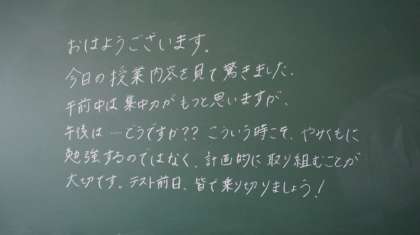 おはようございます。
今日の授業内容を見て驚きました。
午前中は集中力がもつと思いますが、
午後は…どうですか?? こういう時こそ、やみくもに
勉強するのではなく、計画的に取り組むことが
大切です。テスト前日、皆で乗り切りましょう!